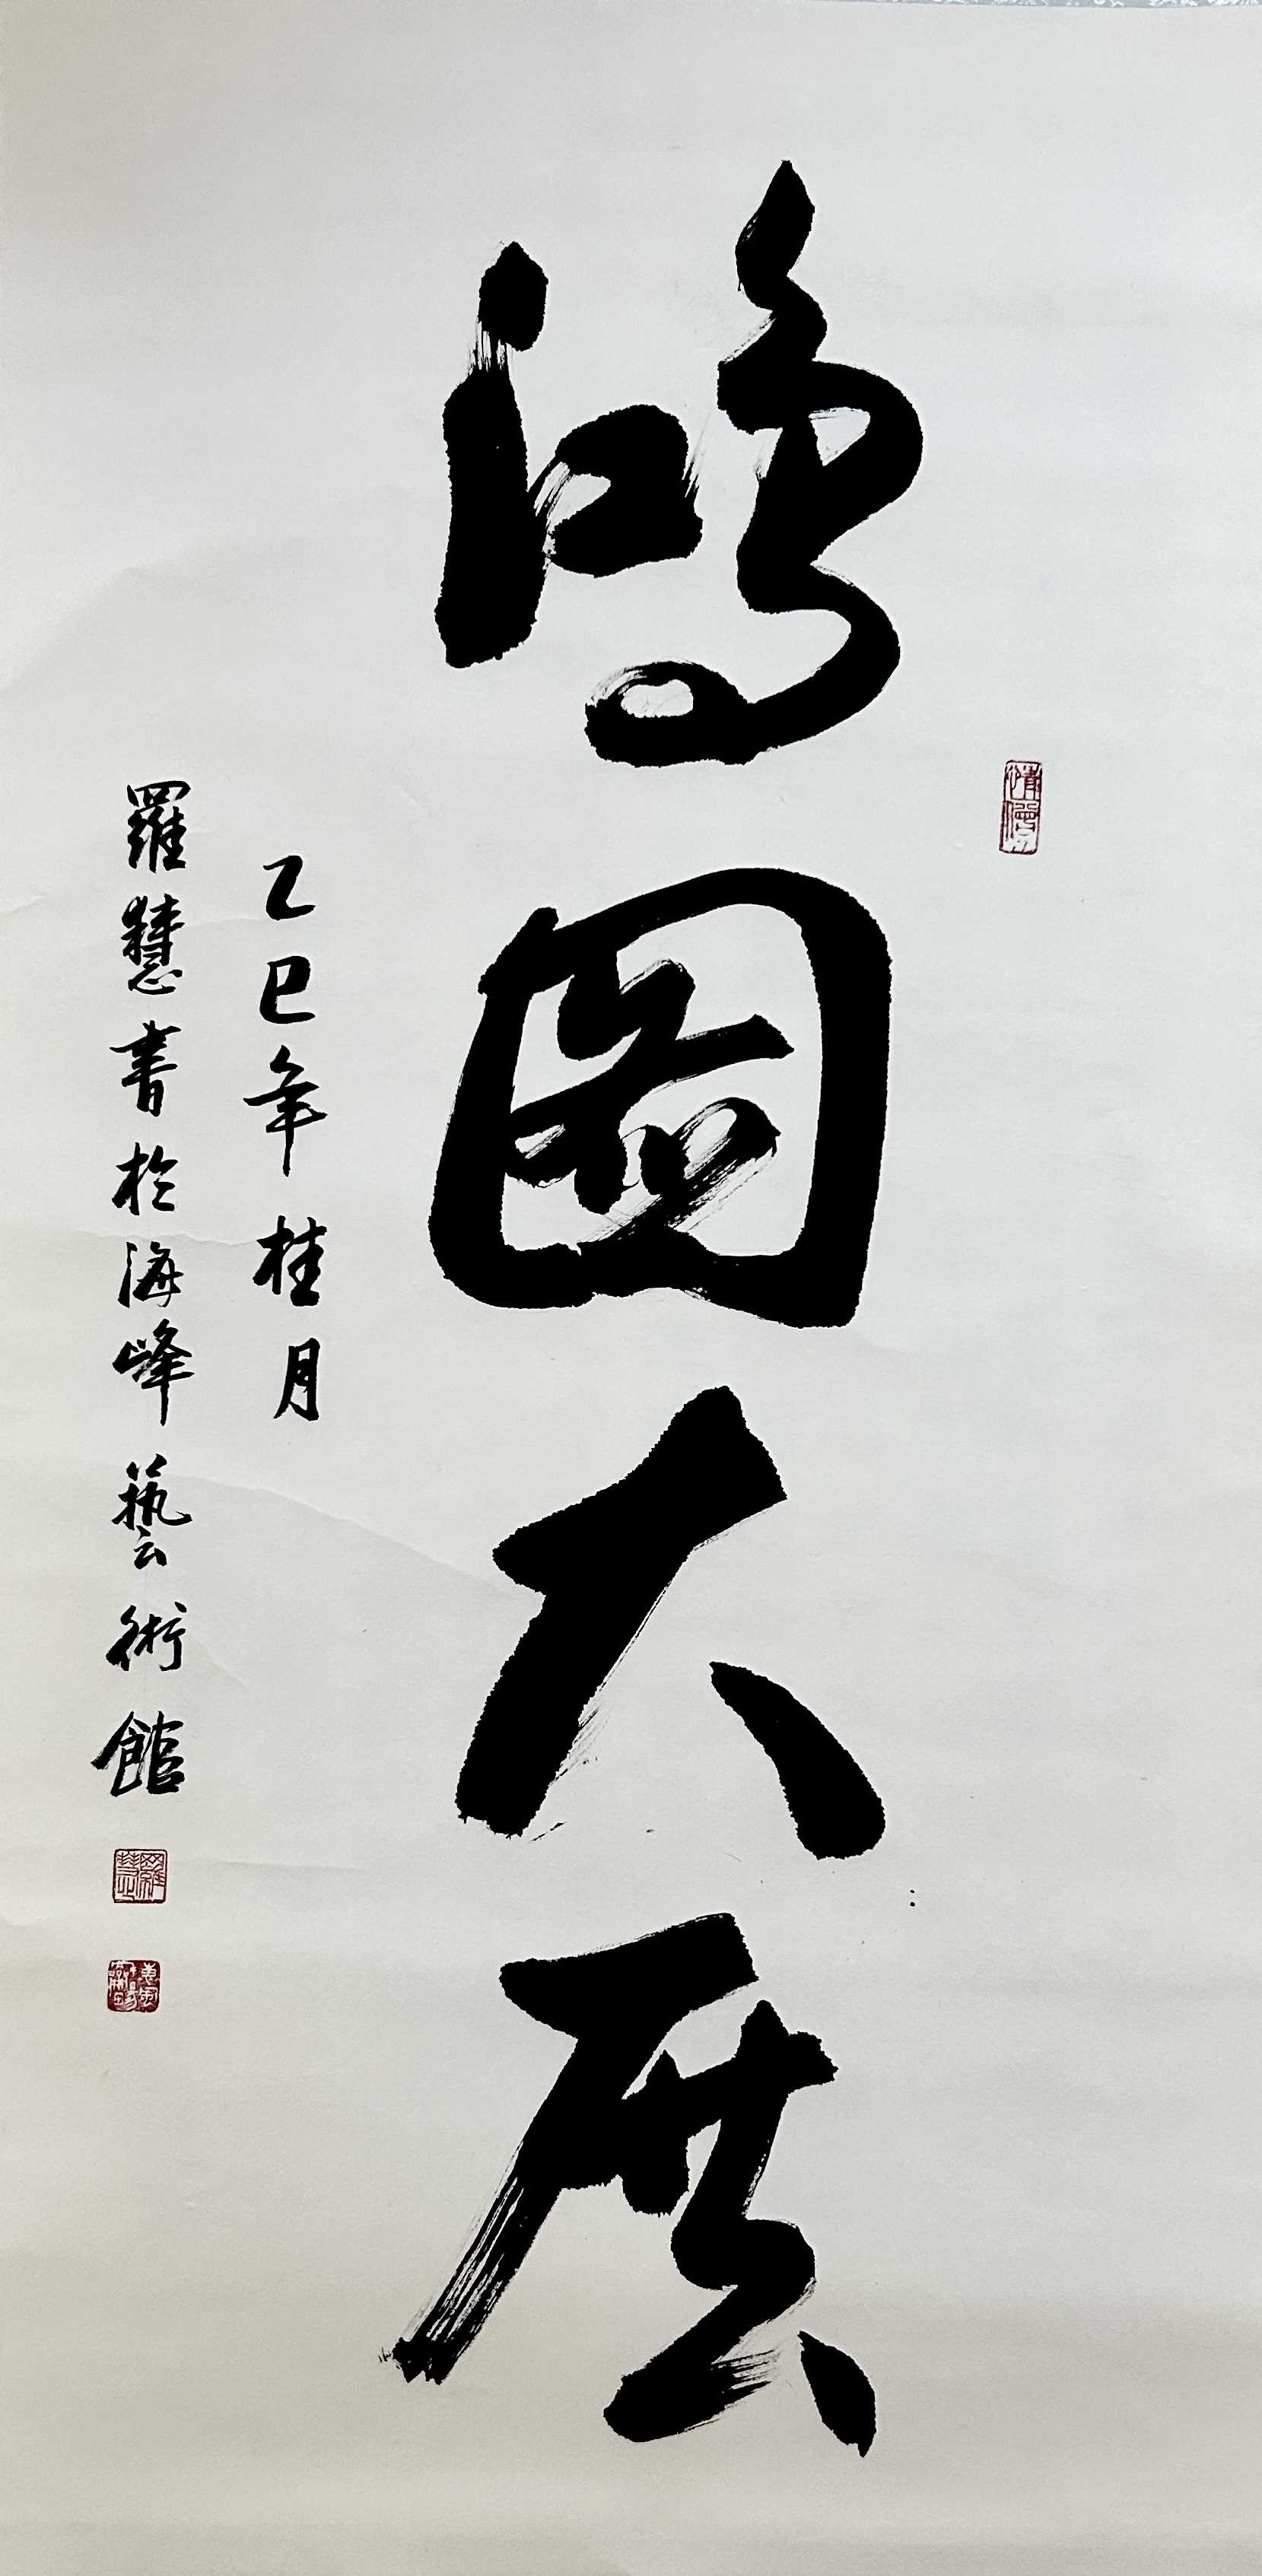 鴻圖大展
乙巳年桂月
羅慧書於海峰藝術館
羅慧